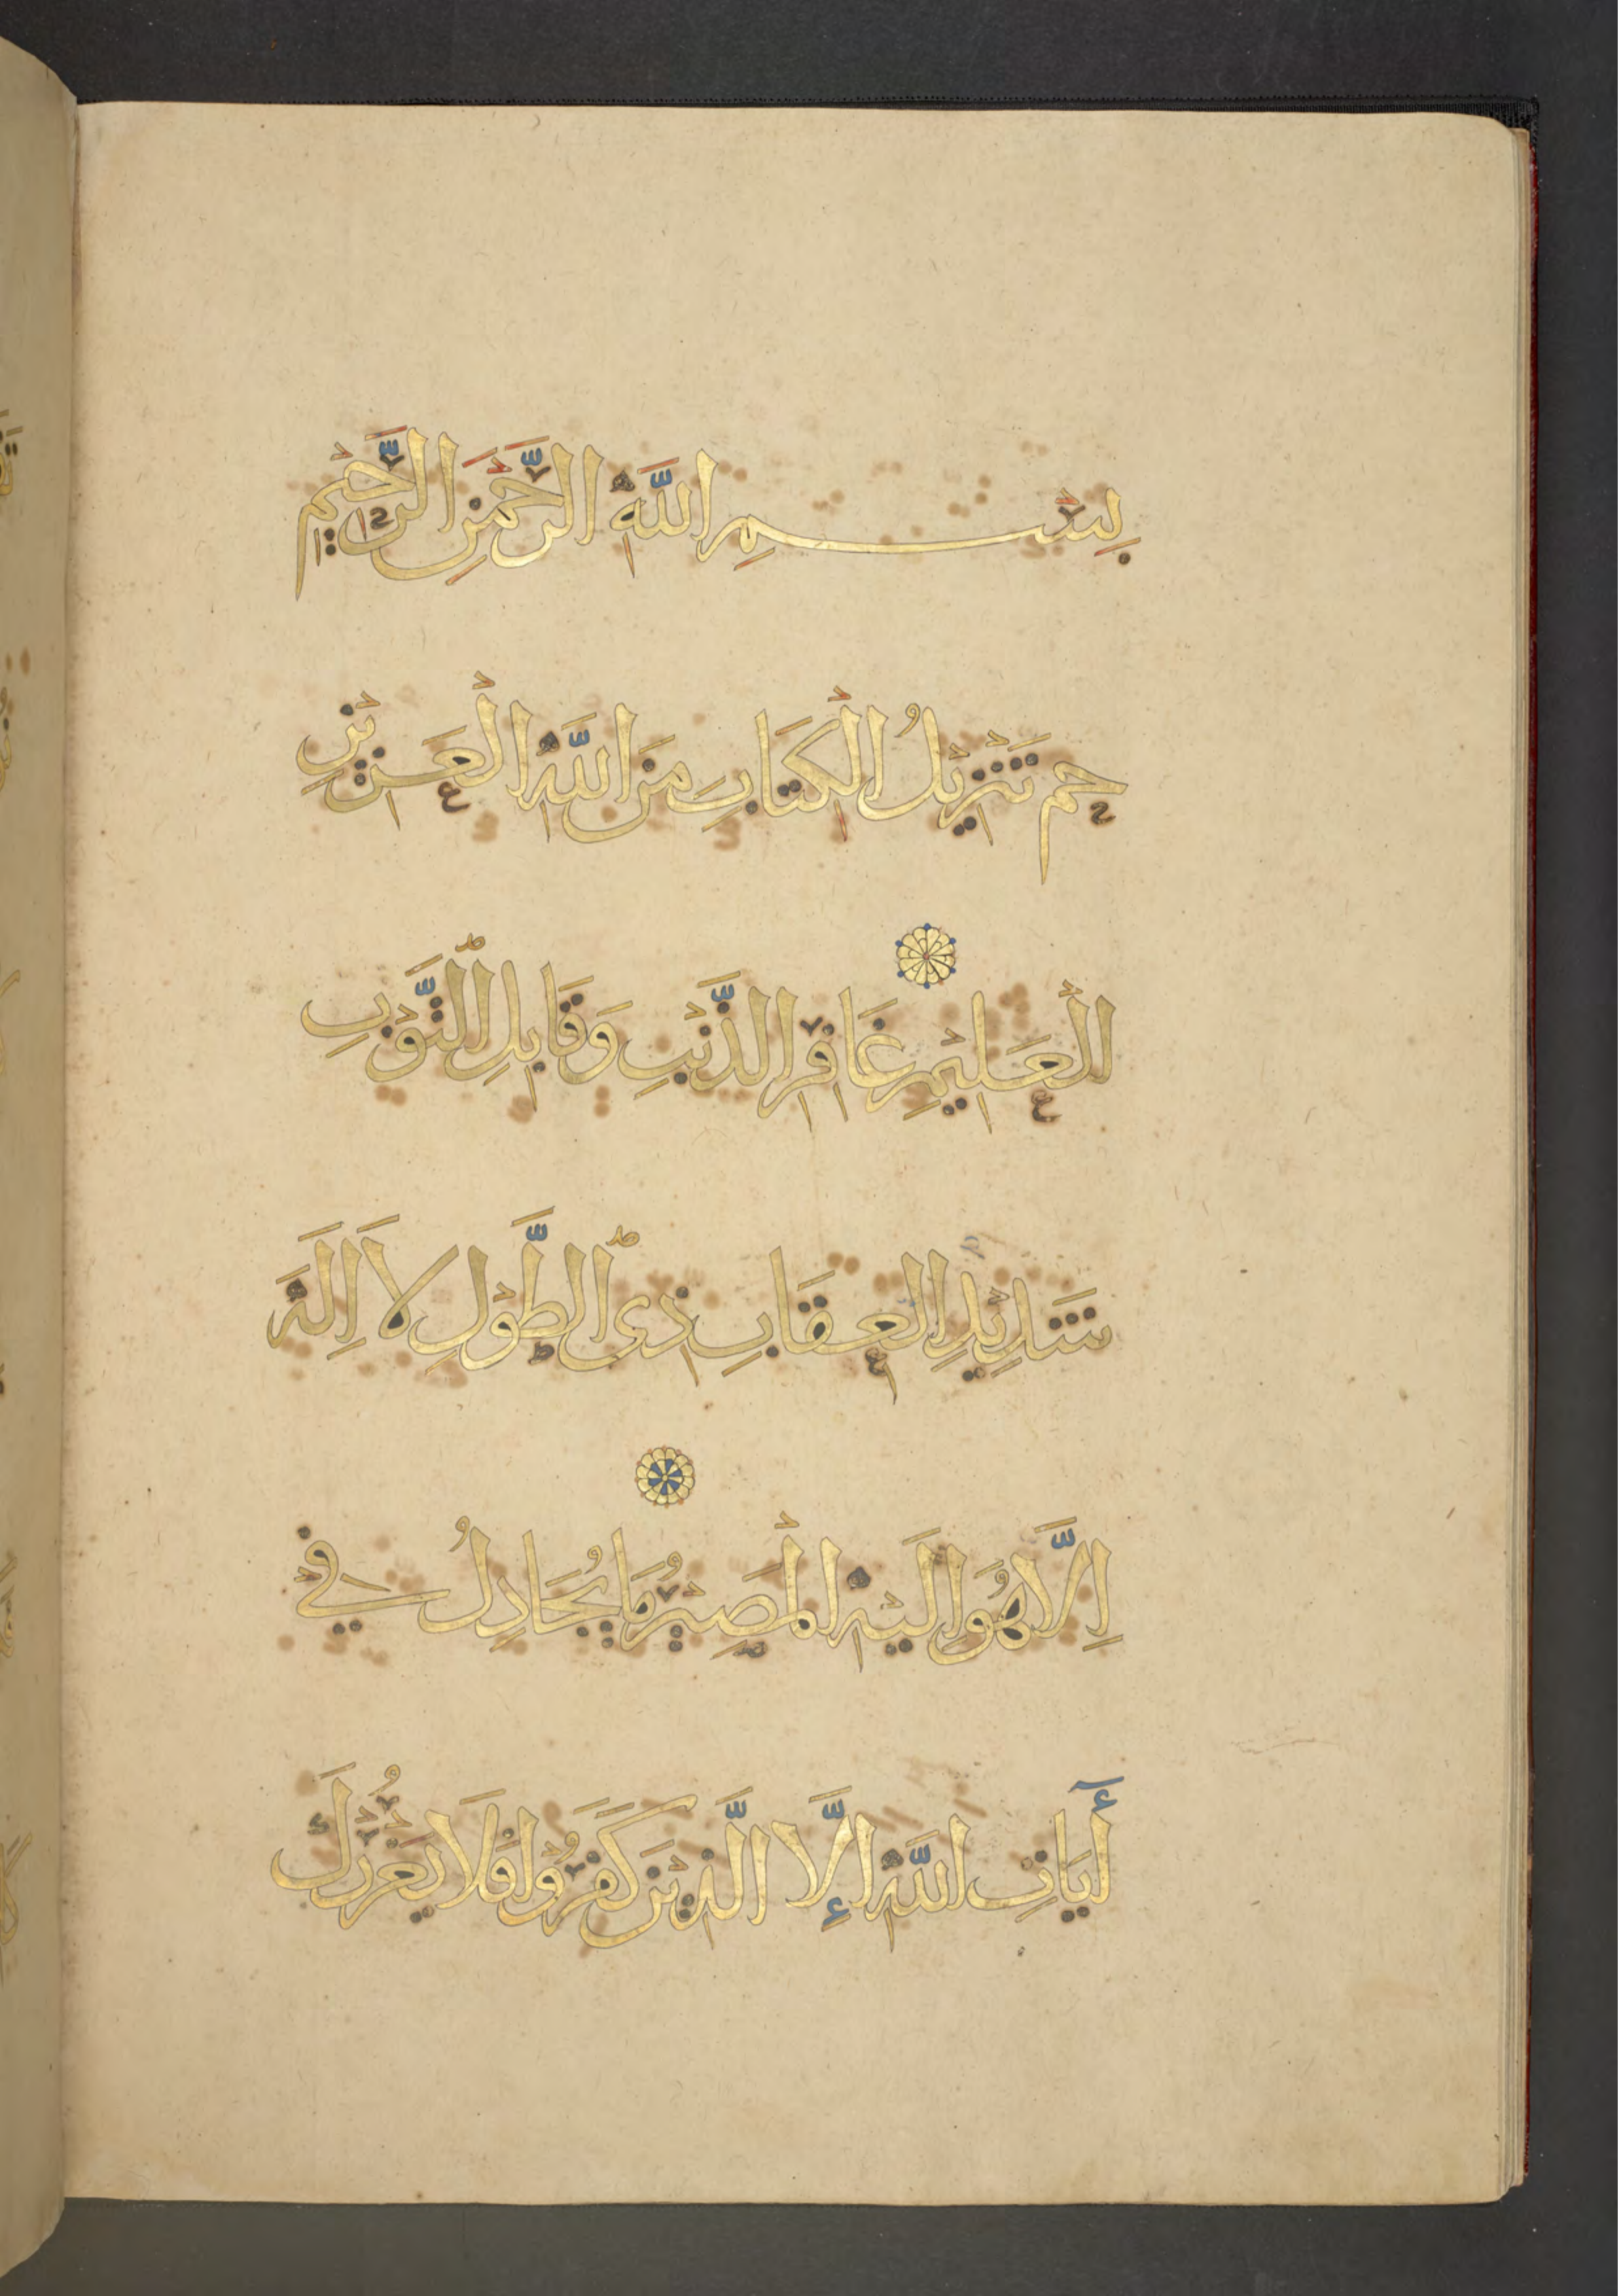 بِسْمِ اللَّهِ الرَّحْمَنِ الرَّحِيْمِ
حم تَنْزِيْلُ الْكِتَابِ مِنَ اللَّهِ الْعَزِيْزِ
الْعَلِيْمِ غَافِرِ الذَّنْبِ وَقَابِلِ التَّوْبِ
شَدِيْدِ الْعِقَابِ ذِى الطَّوْلِ لَا اِلَهَ
اِلَّا هُوَ اِلَيْهِ الْمَصِيْرُ مَا يُجَادِلُ فِي
أَيَاتِ اللَّهِ إِلَّا الَّذِيْنَ كَفَرُوْا فَلَا يَغْرُرْكَ